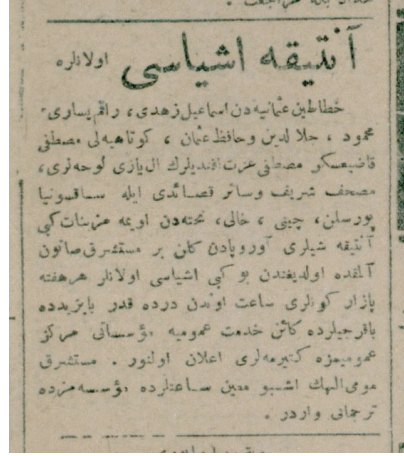 آنتيقه اشياسى اولانلره
خطاطين عثمانيه دن اسماعيل زهدى، راقم يسارى.
محمود ، جلال الدين وحافظ عثمان ، كوتاهيه لى مصطفى
قاضيعسكر مصطفى عزت افنديلرك ال يازى لوحه لرى،
مصحف شريف وسائر قصائدى ايله ساقسونيا
پورسلن، چينى ، خالى، تخته دن اويمه مزينات كبى
آنتيقه شيلرى آوروپادن كلن بر مستشرق صاتون
آلمقده اولديغندن بو كبى اشياسى اولانلر هر هفته
پازار كونلرى ساعت اوندن درده قدر بايزيدده
باقرجيلرده كائن خدمت عموميه مؤسساتى مركز
عموميمزه كتيرمه لرى اعلان اولنور . مستشرق
مومى اليهك اشبو معين ساعتلرده مؤسسه مزده
ترجمانى واردر .